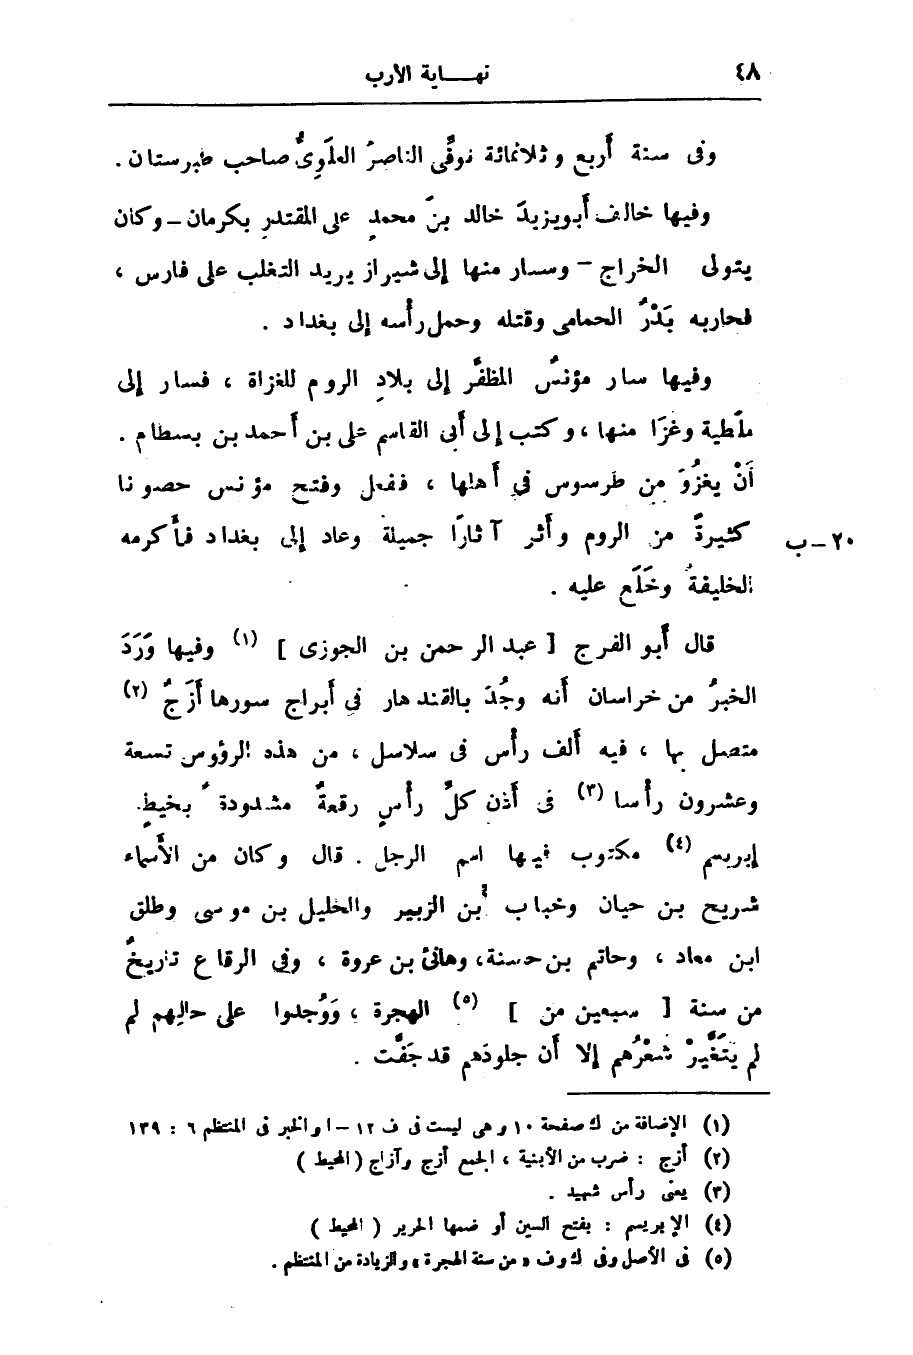 ٤٨ نهـــاية الأرب
وفى سنة أربع وثلاثمائة توفِّى الناصرُ العلَوِىُّ صاحب طبرستان .
وفيها خالف أبويزيدَ خالد بنَ محمدٍ على المقتدرِ بكرمان – وكان
يتولى الخراج – وسار منها إلى شيراز يريد التغلب على فارس ،
فحاربه بَدْرُ الحمامى وقتله وحمل رأسه إلى بغداد .
وفيها سار مؤنسُ المظفَّر إلى بلادِ الروم للغزاة ، فسار إلى
ملَطية وغزَا منها ، وكتب إلى أبى القاسم على بن أحمد بن بسطام .
أنْ يغزُوَ من طرسوس فى أهلها ، ففعل وفتح مؤنس حصونا
كثيرةً من الروم وأثر آثارًا جميلة وعاد إلى بغداد فأكرمه
٢٠ – ب
الخليفةُ وخَلَع عليه .
قال أبو الفرج [ عبد الرحمن بن الجوزى ] (١) وفيها وَرَدَ
الخبرُ من خراسان أنه وجُدَ بالقندهار فى أبراج سورها أزَجُ (٢)
متصل بها ، فيه ألف رأس فى سلاسل ، من هذه الرؤوس تسعة
وعشرون رأسا (٣) فى أذن كلِّ رأسٍ رقعةٌ مشدودة بخيطِ
إبريسم (٤) مكتوب فيها اسم الرجل . قال وكان من الأسماء
شريح بن حيان وخباب بن الزبير والخليل بن موسى وطلق
ابن معاد ، وحاتم بن حسنة، وهانئ بن عروة ، وفى الرقاع تاريخُ
من سنة [ سبعين من ] (٥) الهجرة ، وَوُجدوا على حالِهم لم
لم يَتَغَيَّرْ شَعْرُهم إلا أن جلودَهم قد جَفَّت .
(١) الإضافة من ك صفحة ١٠ وهى ليست فى ف ١٢ – ا والخبر فى المنتظم ٦ : ١٣٩
(٢) أزج : ضرب من الأبنية ، الجمع أزج وآزاج ( المحيط )
(٣) يعنى رأس شهيد .
(٤) الإبريسم : بفتح السين أو ضمها الحرير ( المحيط )
(٥) فى الأصل وفى ك وف « من سنة الهجرة » والزيادة من المنتظم .